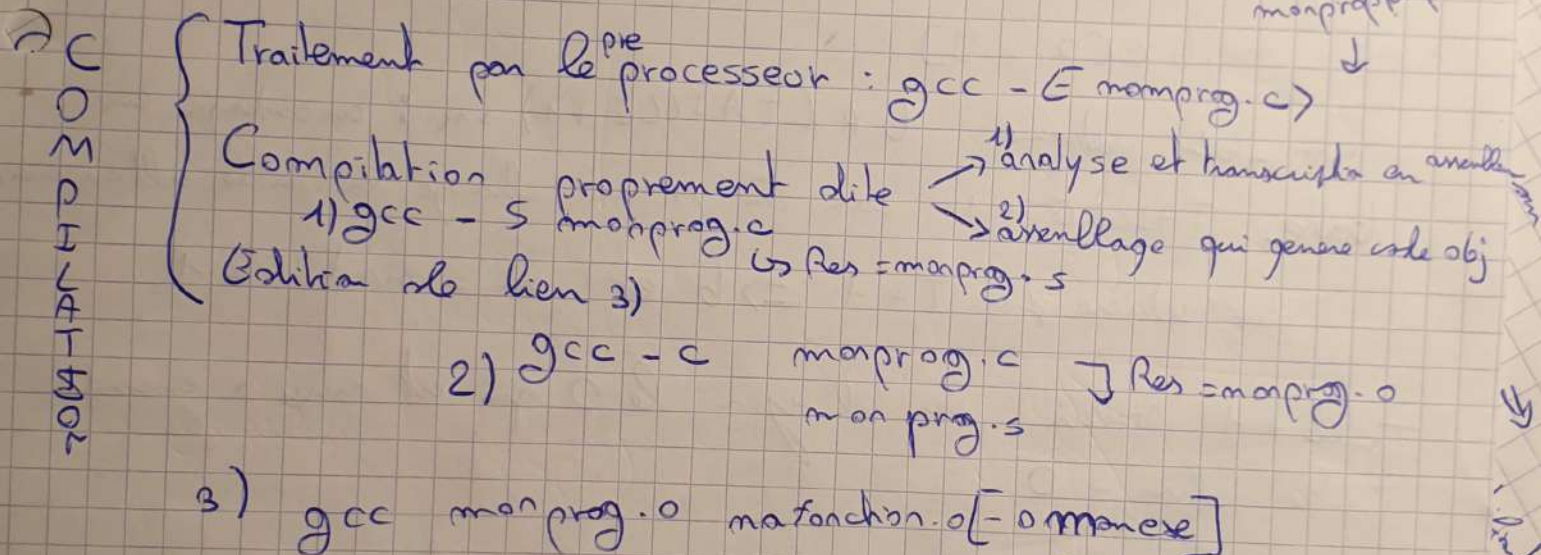 COMPILATION
Traitement par le preprocesseur : gcc -E monprog.c >
Compilation proprement dite
1) analyse et transcription en
2) assemblage qui genere code obj
1) gcc -S monprog.c
↳ Res = monprog.s
Edition de lien 3)
2) gcc -c monprog.c
monprog.s
Res = monprog.o
3) gcc monprog.o mafonction.o [-o monexe]